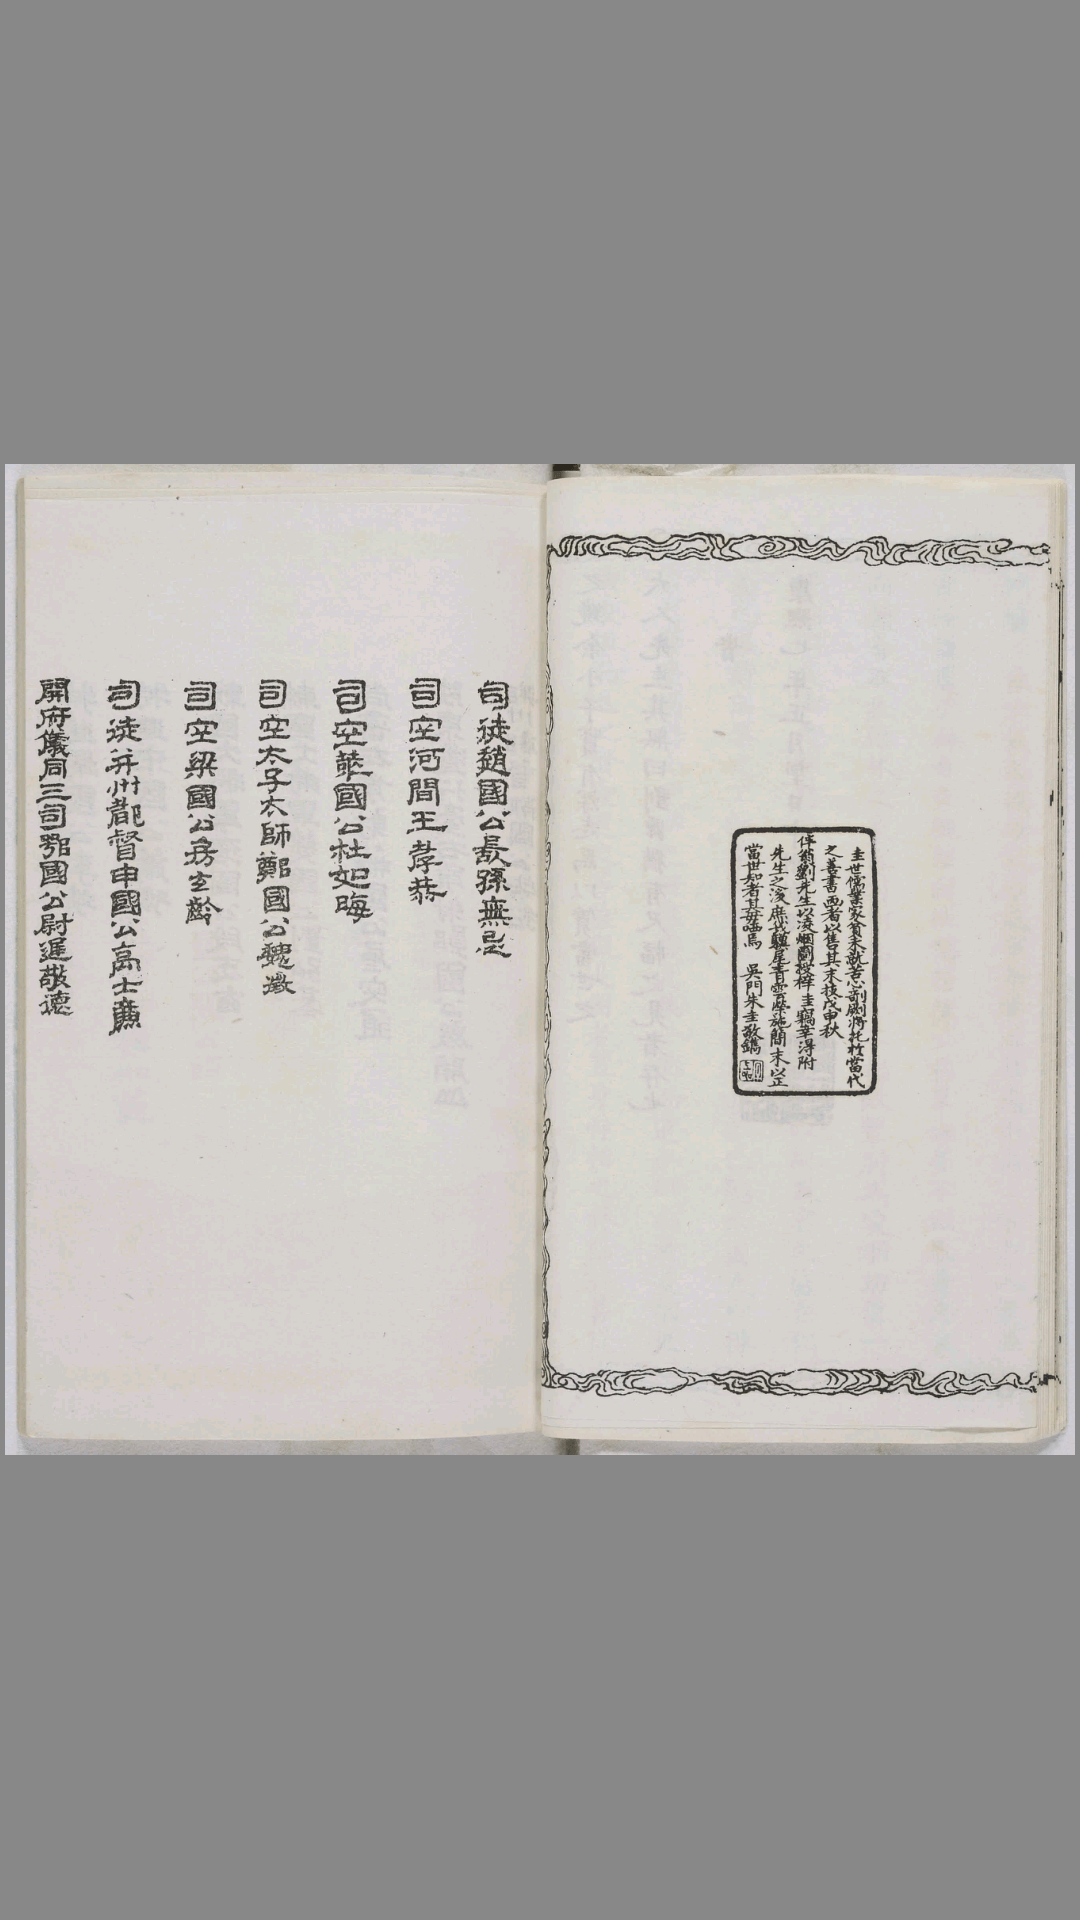 圭世儒業家貧未就苦心剞劂將托於當代
之善書畫者以售其末技戊申秋
伴翁劉先生以凌烟圖授梓圭竊幸得附
先生之後庶幾驥尾青雲榮施簡末以正
當世知者其毋哂焉 吳門朱圭敬鐫
司徒趙國公長孫無忌
司空河間王孝恭
司空萊國公杜如晦
司空太子太師鄭國公魏徵
司空梁國公房玄齡
司徒并州都督申國公高士廉
開府儀同三司鄂國公尉遲敬德